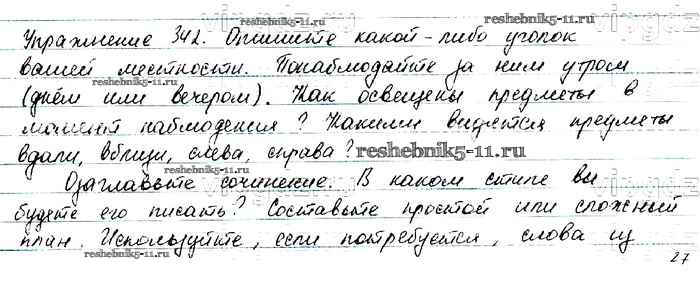 reshebnik5-11.ru
Упражнение 342. Опишите какой-либо уголок
вашей местности. Понаблюдайте за ним утром
reshebnik5-11.ru
(днём или вечером). Как освещены предметы в
момент наблюдения? Какими видятся предметы
вдали, вблизи, слева, справа? reshebnik5-11.ru
Озаглавьте сочинение. В каком стиле вы
будете его писать? Составьте простой или сложный
reshebnik5-11.ru
план. Используйте, если потребуется, слова из
reshebnik5-11.ru
27